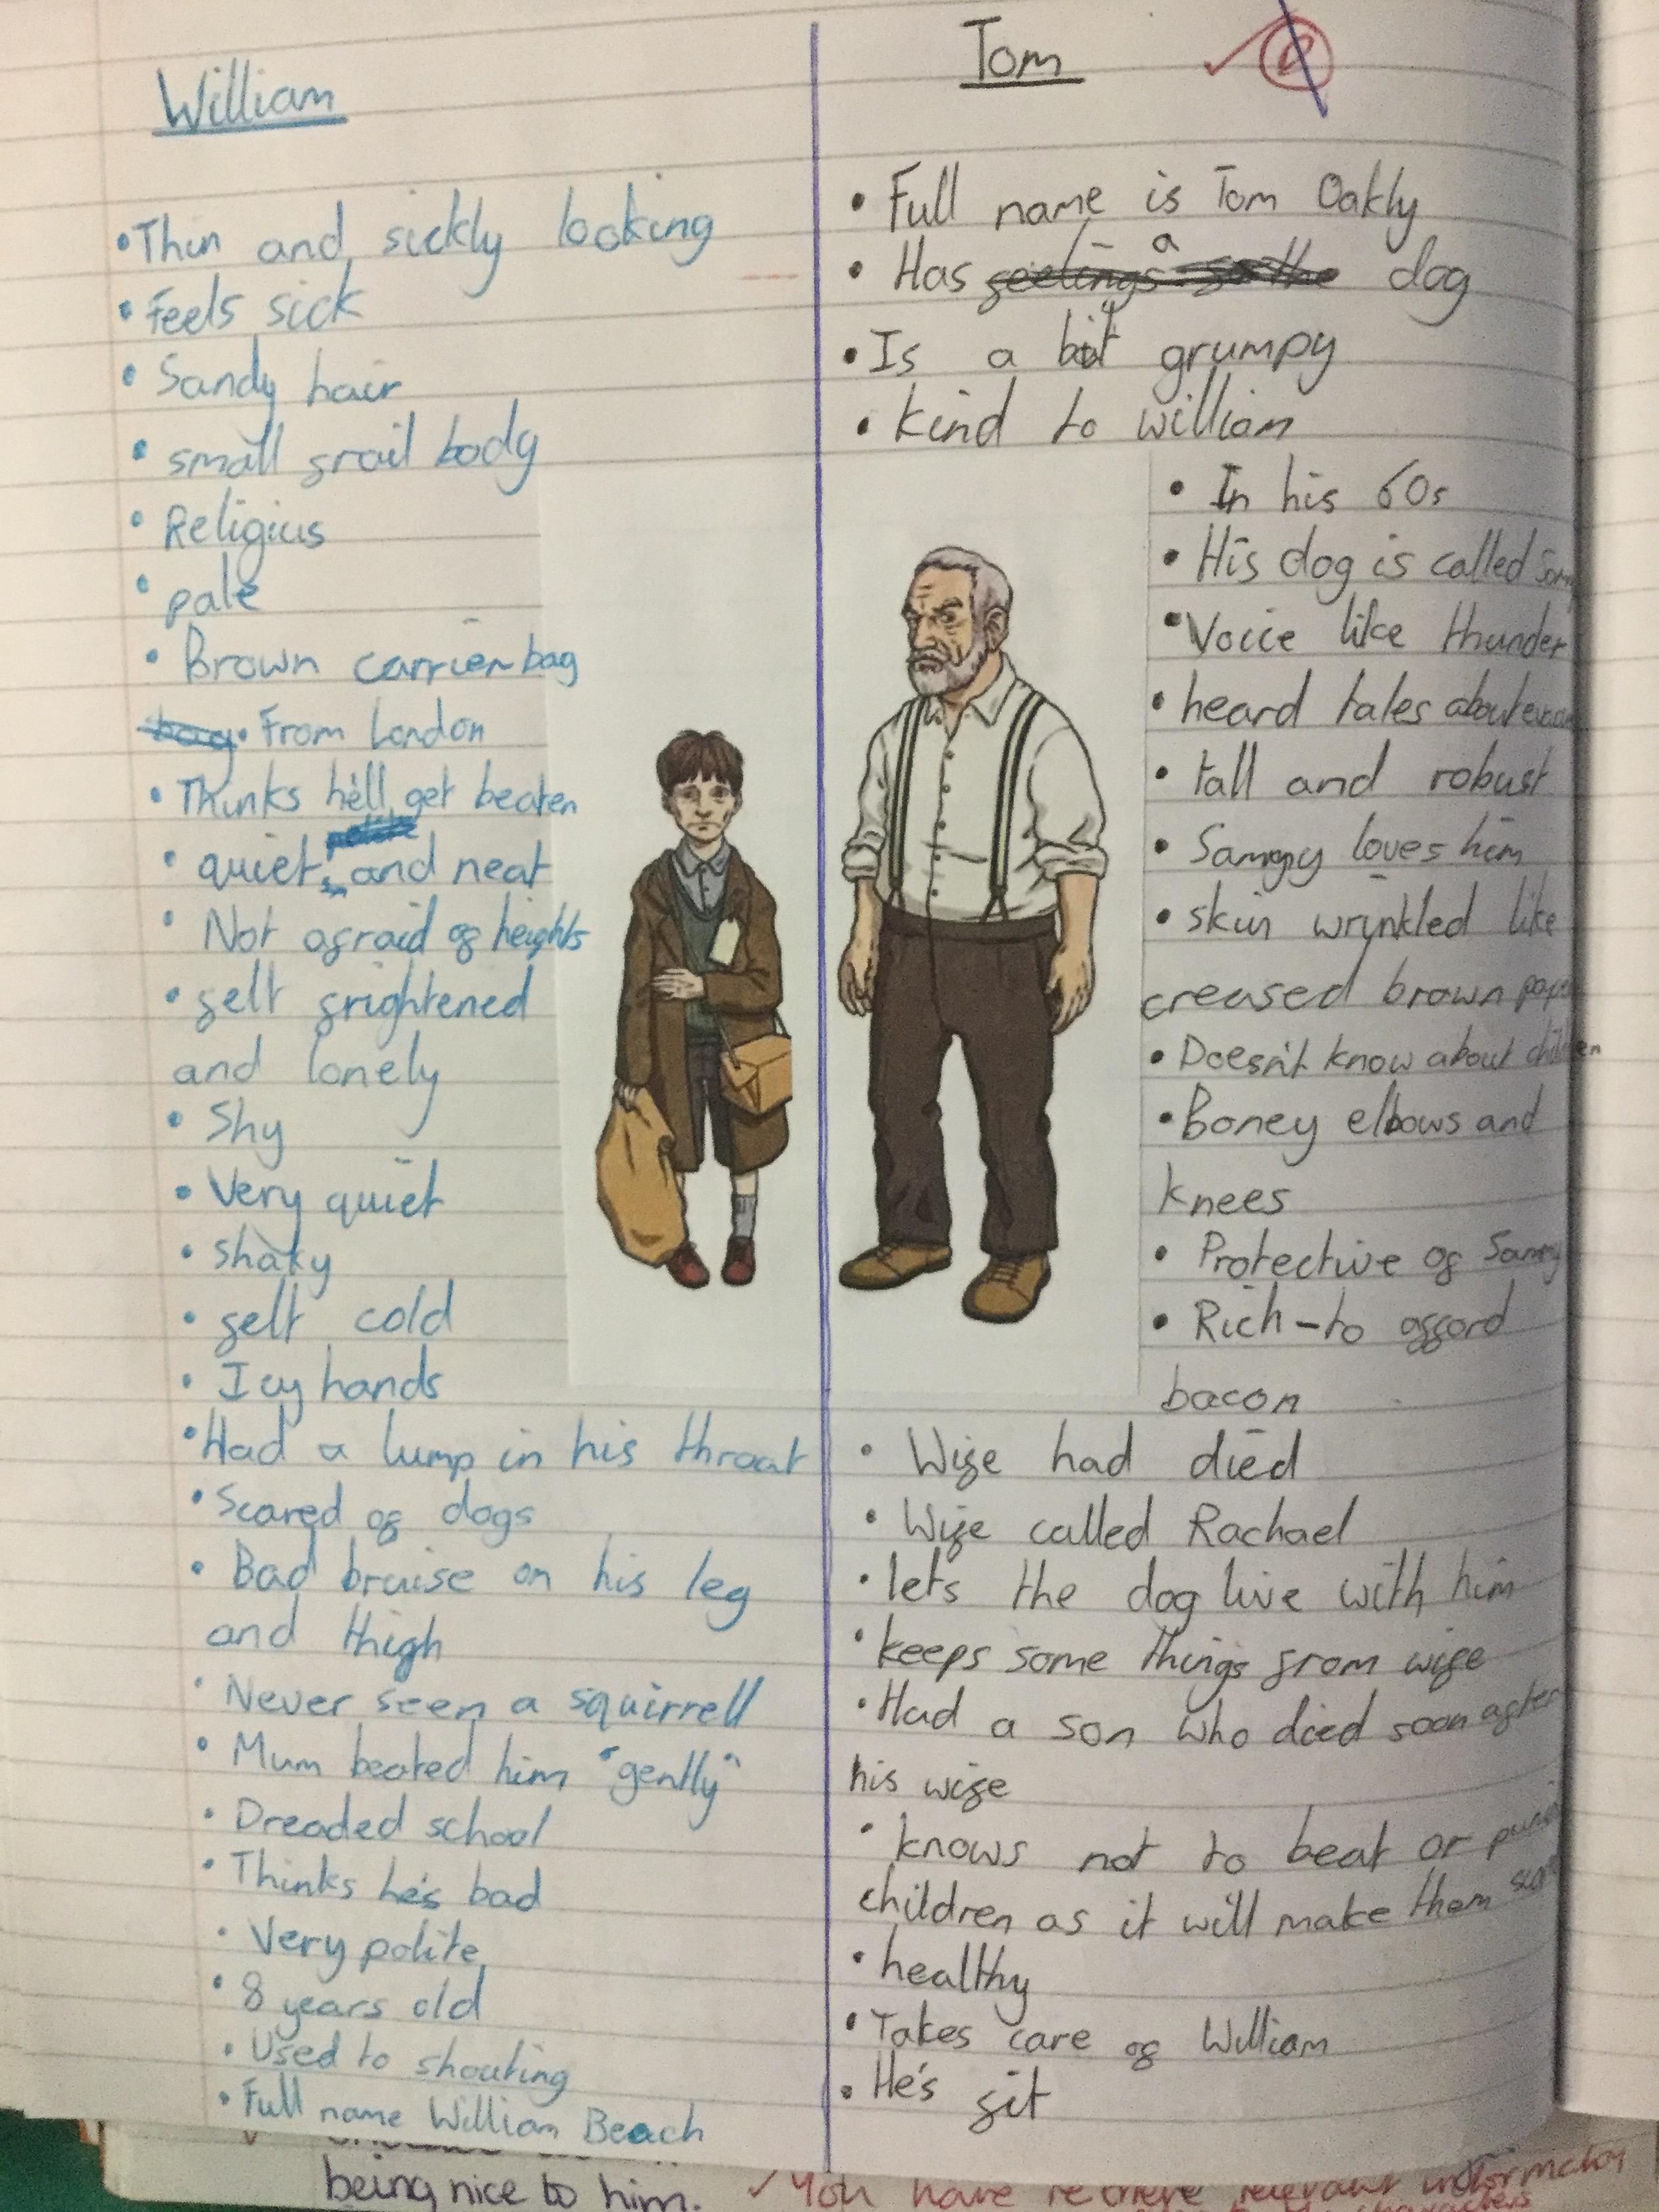 William
• Thin and sickly looking
• Feels sick
• Sandy hair
• small frail body
• Religius
• pale
• Brown carrier bag
bag • From London
• Thinks he'll get beaten
• quiet, and neat
• Not afraid of heights
• felt frightened
and lonely
• Shy
• Very quiet
• shaky
• felt cold
• Icy hands
• Had a lump in his throat
• Scared of dogs
• Bad bruise on his leg
and thigh
• Never seen a squirrell
• Mum beated him "gently"
• Dreaded school
• Thinks he's bad
• Very polite
• 8 years old
• Used to shouting
• Full name William Beach
Tom
• Full name is Tom Oakly
• Has a dog
• Is a bit grumpy
• kind to william
• In his 60s
• His dog is called
• Voice like thunder
• heard tales about
• tall and robust
• Sammy loves him
• skin wrynkled like
creased brown paper
• Doesn't know about children
• Boney elbows and
knees
• Protective of Sammy
• Rich - to afford
bacon
• Wife had died
• Wife called Rachael
• lets the dog live with him
• keeps some things from wife
• Had a son who died soon after
his wife
• knows not to beat or
children as it will make them
• healthy
• Takes care of William
• He's fit
being nice to him.
✓ You have relevant information
characters